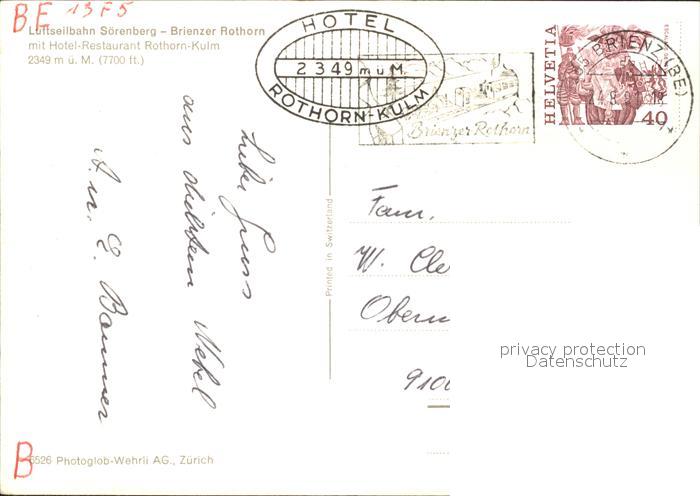 BE 13F5
Luftseilbahn Sörenberg – Brienzer Rothorn
mit Hotel-Restaurant Rothorn-Kulm
2349 m ü. M. (7700 ft.)
HOTEL
2349 m ü M.
ROTHORN-KULM
Brienzer Rothorn
HELVETIA
40
BRIENZ (BE)
Lieber Gruss
aus dichtem Nebel
A. u. E. Bommer
Printed in Switzerland
Fam.
W. Cle
Obern
910
privacy protection
Datenschutz
B
6526 Photoglob-Wehrli AG., Zürich